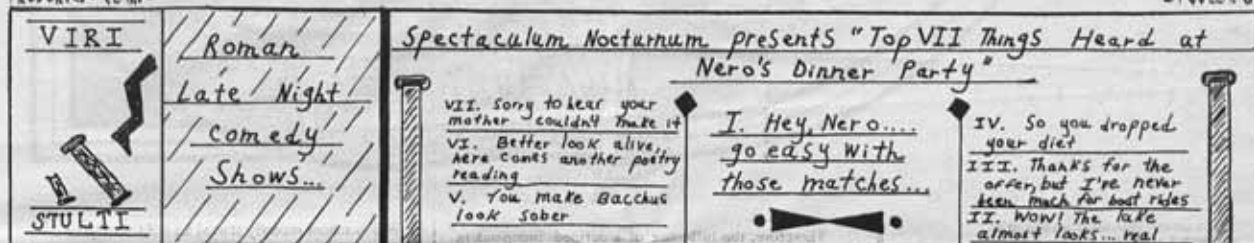 VIRI
STULTI
Roman
Late Night
Comedy
Shows...
Spectaculum Nocturnum presents "Top VII Things Heard at
Nero's Dinner Party"
VII. Sorry to hear your
mother couldn't make it
VI. Better look alive,
here comes another poetry
reading
V. You make Bacchus
look sober
I. Hey, Nero....
go easy with
those matches...
IV. So you dropped
your diet
III. Thanks for the
offer, but I've never
been much for boat rides
II. WOW! The lake
almost looks... real